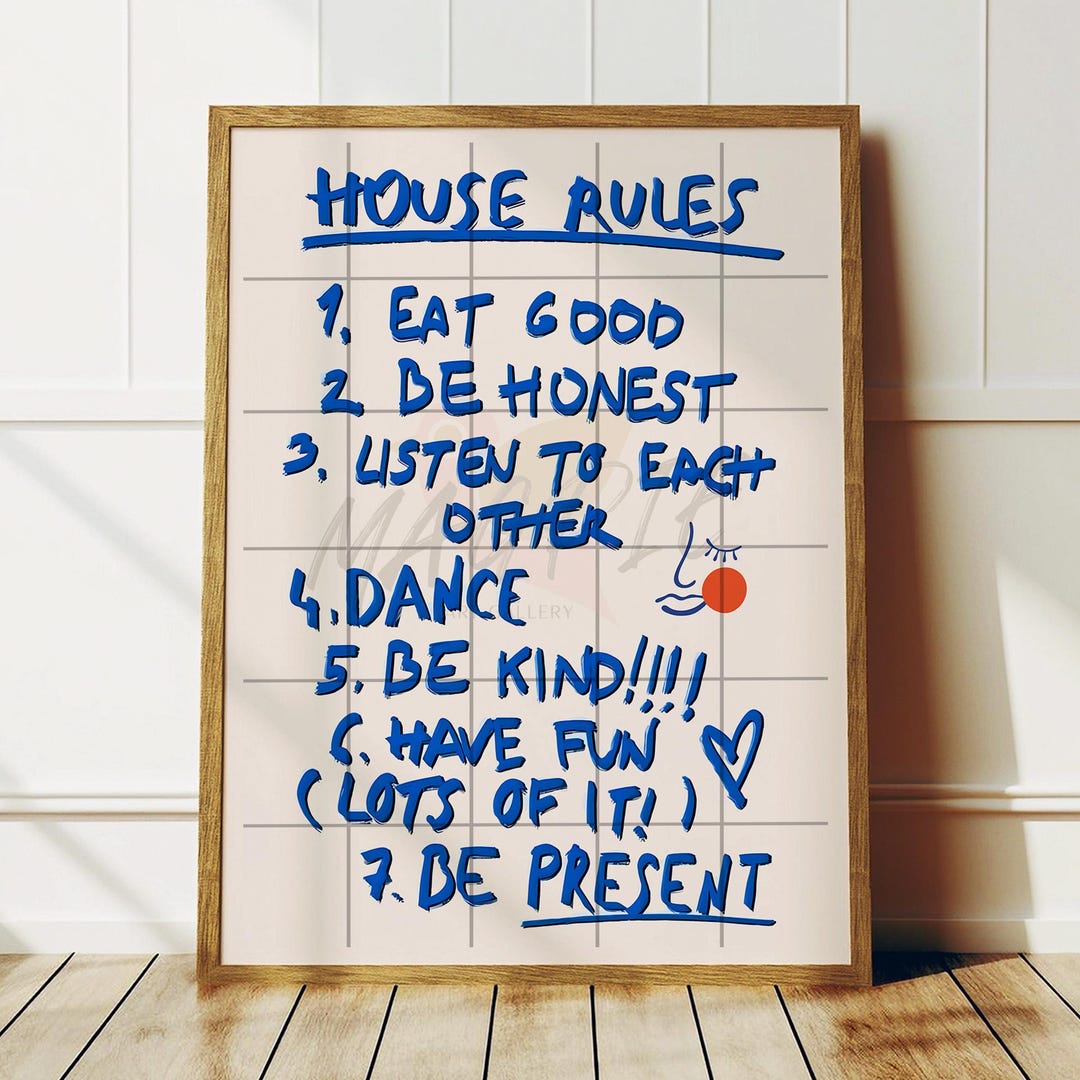 HOUSE RULES
1. EAT GOOD
2 BE HONEST
3. LISTEN TO EACH
OTHER
4. DANCE
5. BE KIND!!!!
6. HAVE FUN
(LOTS OF IT!)
7. BE PRESENT
MAGPIE
ART GALLERY